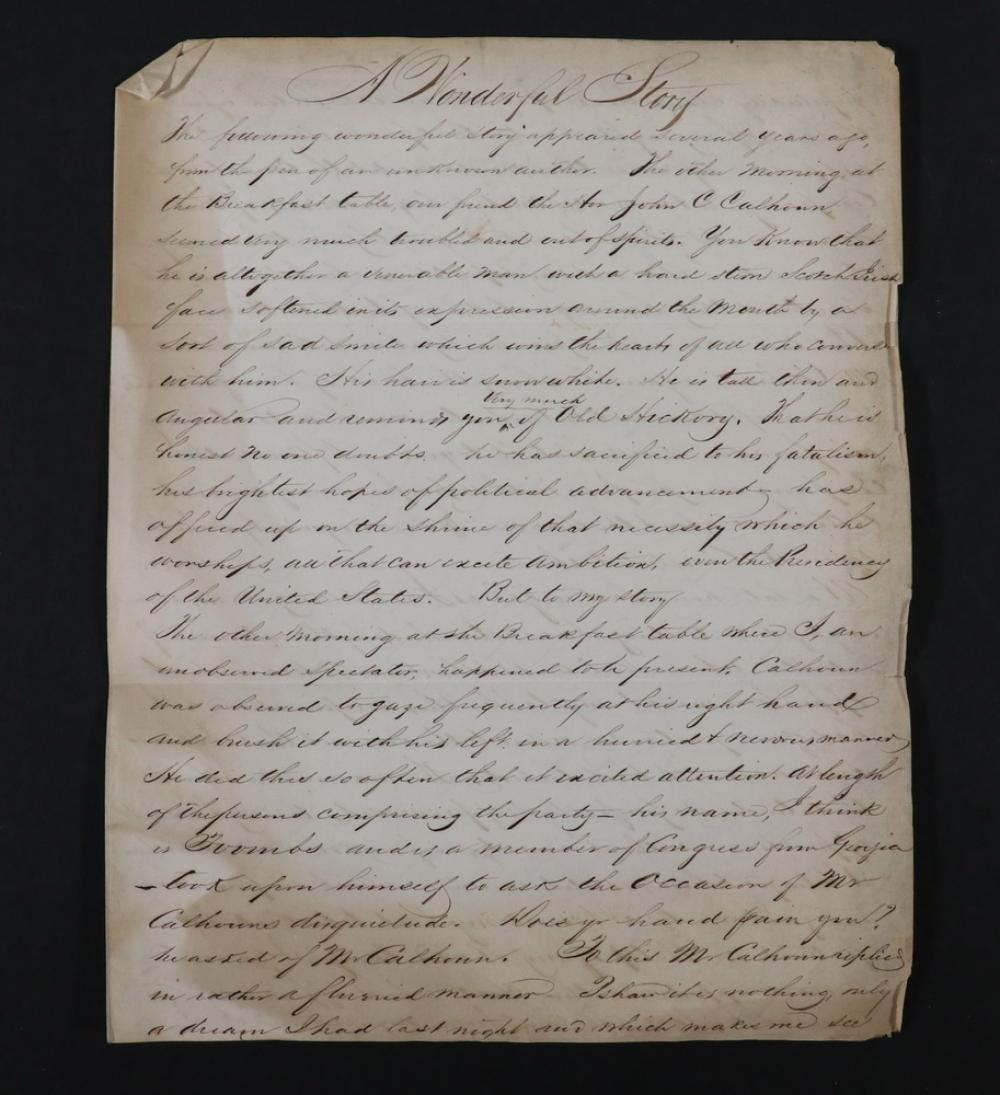 A Wonderful Story
The following wonderful story appeared several years ago,
from the pen of an unknown author. The other morning at
the Breakfast table, our friend the Hon John C Calhoun,
seemed very much troubled and out of spirits. You Know that
he is altogether a venerable man with a hard stern Scotch Irish
face softened in its expression around the mouth by a
sort of sad smile which wins the hearts of all who converse
with him. His hair is snow white. He is tall thin and
very much
angular and reminds you of Old Hickory. That he is
honest no one doubts. he has sacrificed to his fatalism,
his brightest hopes of political advancement, has
offered up on the shrine of that necessity which he
worships, all that can excite ambition, even the Presidency
of the United States. But to my story
The other morning at the Breakfast table where I, an
unobserved spectator, happened to be present, Calhoun
was observed to gaze frequently at his right hand
and brush it with his left in a hurried & nervous manner
He did this so often that it excited attention. At length
of the persons comprising the party — his name, I think
is Toombs and is a member of Congress from Georgia
— took upon himself to ask the Occasion of Mr
Calhouns disquietude. Does yr hand pain you?
he asked of Mr Calhoun. To this Mr Calhoun replied
in rather a flurried manner Pshaw it is nothing, only
a dream I had last night and which makes me see